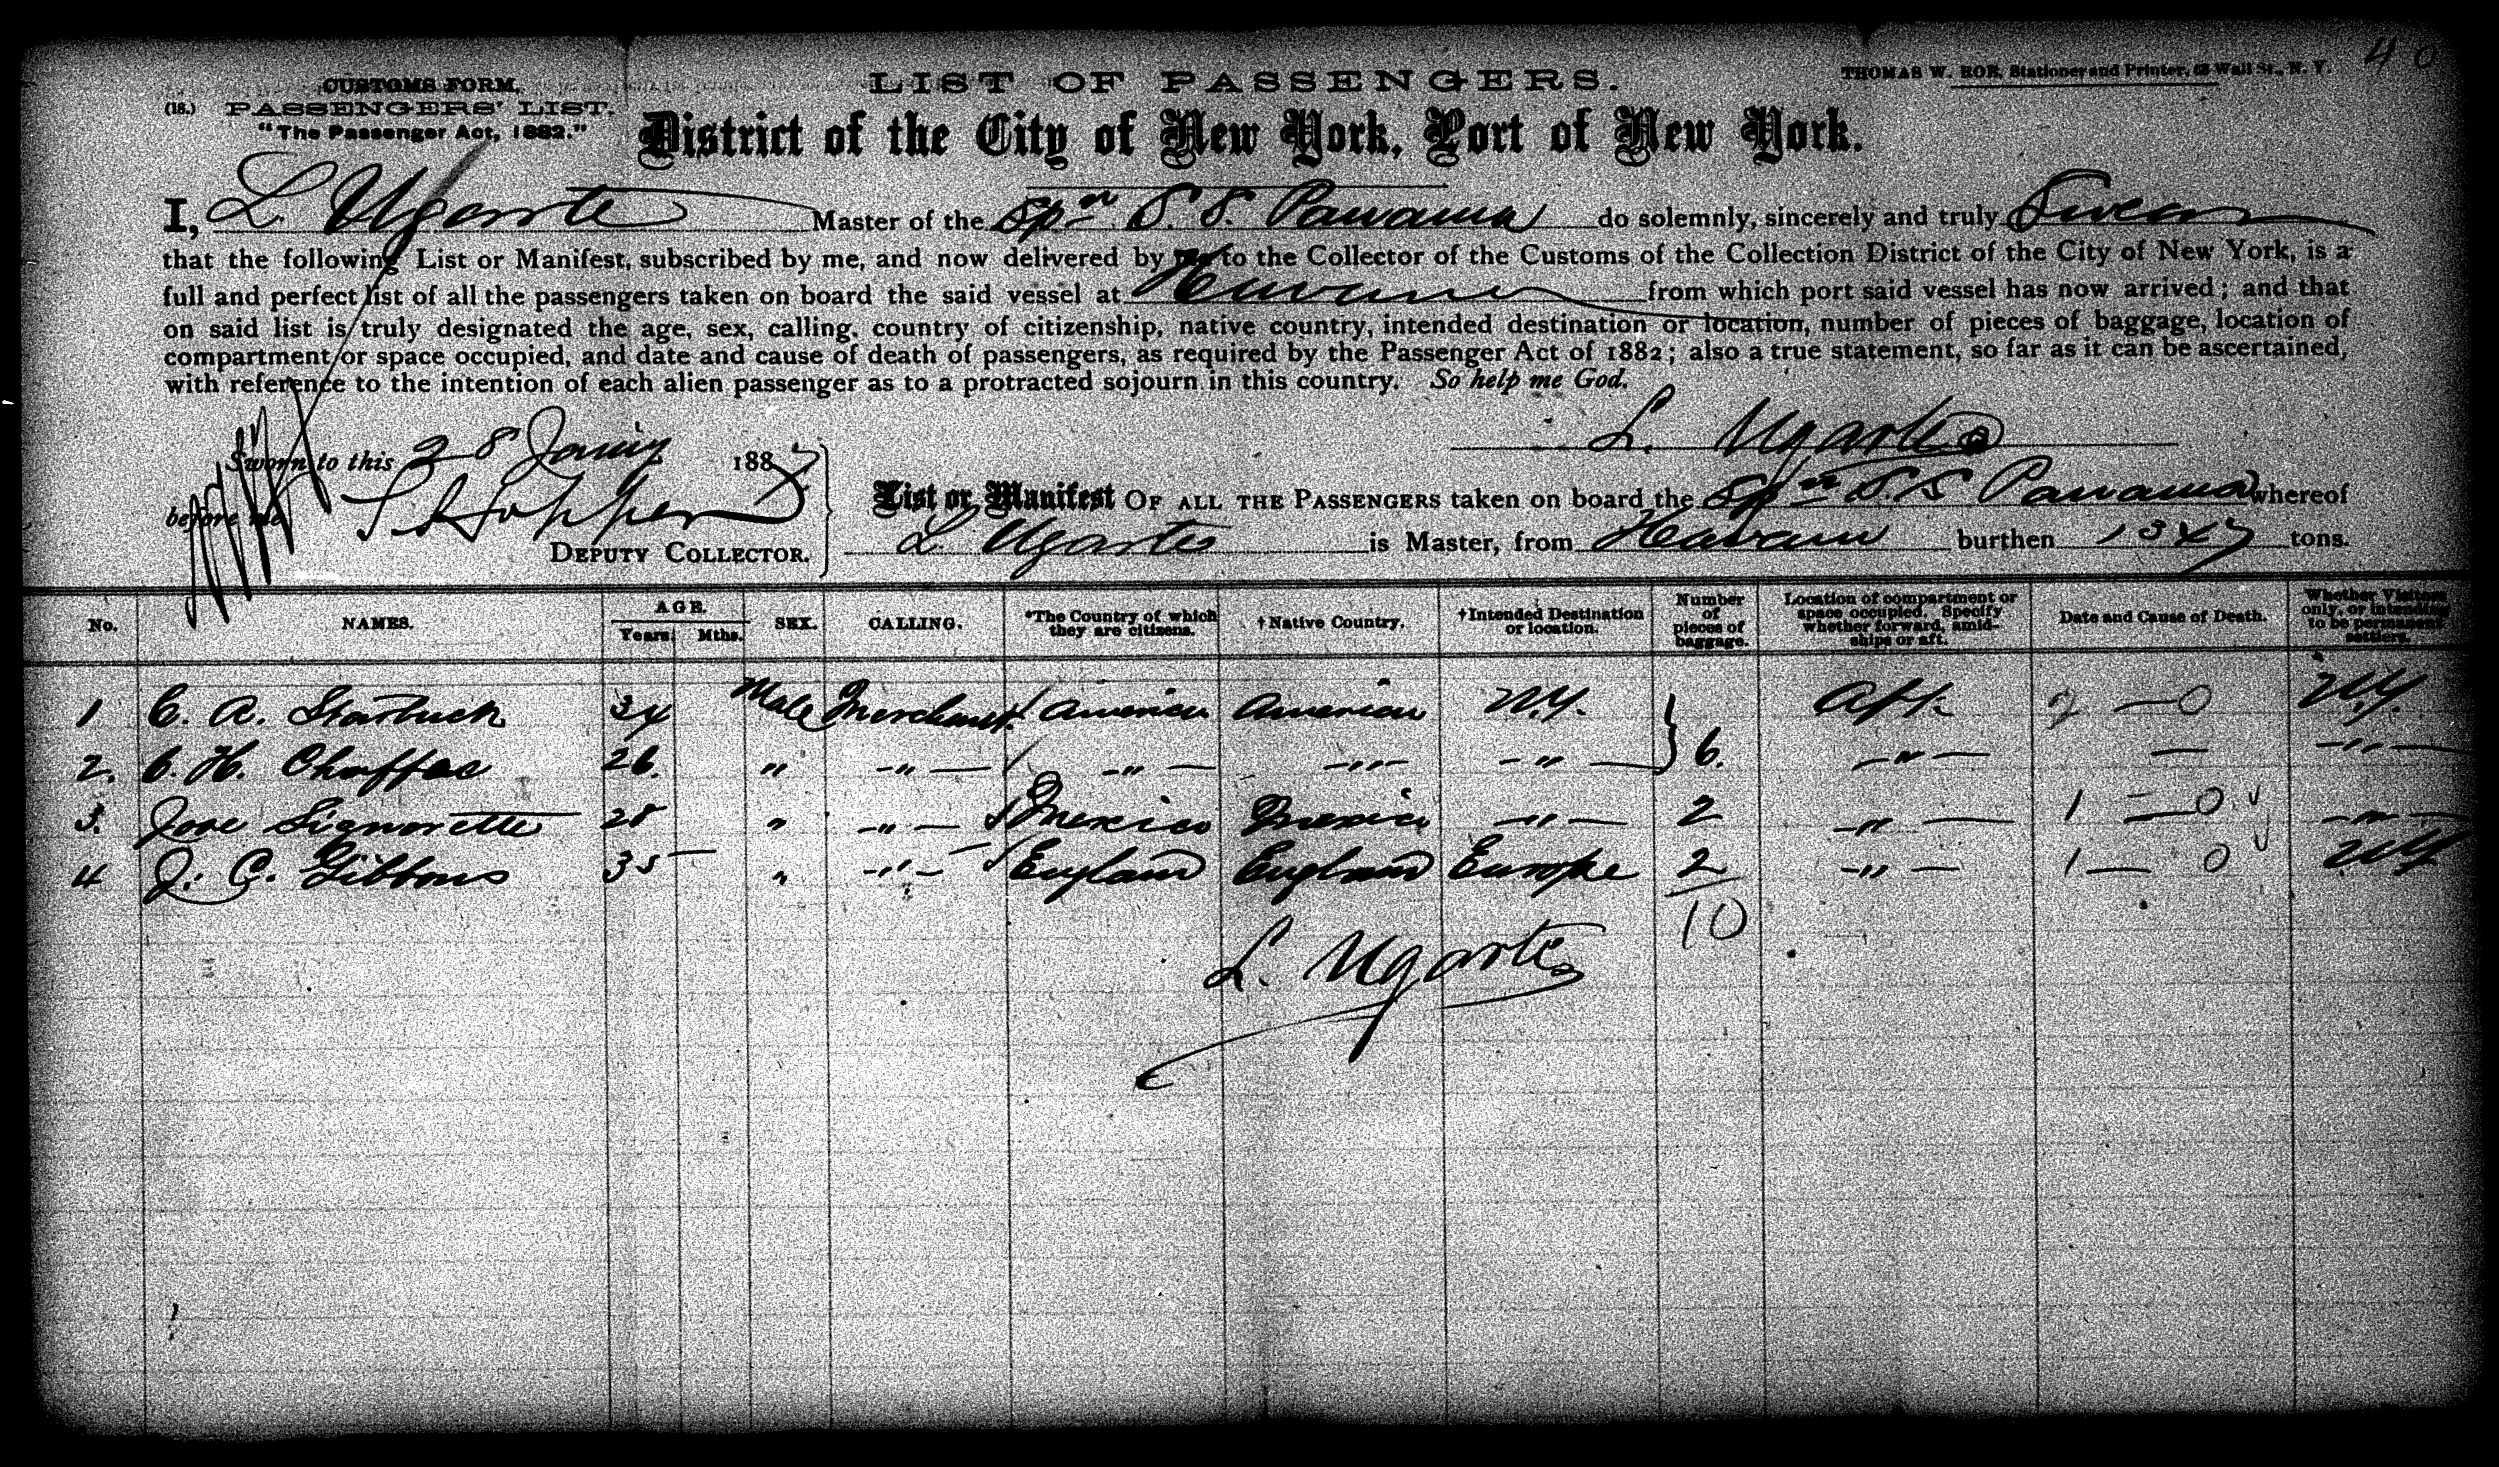 40
CUSTOMS FORM.
(18.) PASSENGERS' LIST.
"The Passenger Act, 1882."
LIST OF PASSENGERS.
THOMAS W. ROE, Stationer and Printer, 63 Wall St., N. Y.
District of the City of New York, Port of New York.
I, L. Ugarte Master of the Spn S. S. Panama do solemnly, sincerely and truly Swear
that the following List or Manifest, subscribed by me, and now delivered by me to the Collector of the Customs of the Collection District of the City of New York, is a
full and perfect list of all the passengers taken on board the said vessel at Havana from which port said vessel has now arrived; and that
on said list is truly designated the age, sex, calling, country of citizenship, native country, intended destination or location, number of pieces of baggage, location of
compartment or space occupied, and date and cause of death of passengers, as required by the Passenger Act of 1882; also a true statement, so far as it can be ascertained,
with reference to the intention of each alien passenger as to a protracted sojourn in this country. So help me God.
L. Ugarte
Sworn to this 28 Jany 1887
before me
DEPUTY COLLECTOR.
List or Manifest OF ALL THE PASSENGERS taken on board the Spn S. S. Panama whereof
L. Ugarte is Master, from Havana burthen 1347 tons.
No. NAMES. AGE. Years. Mths. SEX. CALLING. *The Country of which they are citizens. †Native Country. †Intended Destination or location. Number of pieces of baggage. Location of compartment or space occupied. Specify whether forward, amidships or aft. Date and Cause of Death. Whether Visitors only, or intending to be permanent settlers.
1 C. A. Starbuck 34 Male Merchant American American N.Y. Aft. 2 — 0 N.Y.
2. C. H. Chaffee 26. " " " " " 6. " — "
3. Jose Signorette 28 " " Mexico Mexico " 2 " 1 — 0 "
4 J. C. Gibbons 35 " " England England Europe 2 " 1 — 0 N.Y.
10
L. Ugarte